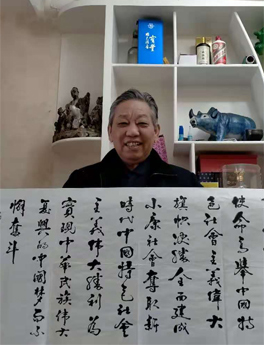 使命高舉中國特
色社會主義偉大
旗幟決勝全面建成
小康社會奪取新
時代中國特色社會
主義偉大勝利為
實現中華民族偉大
復興的中國夢而不
懈奮斗